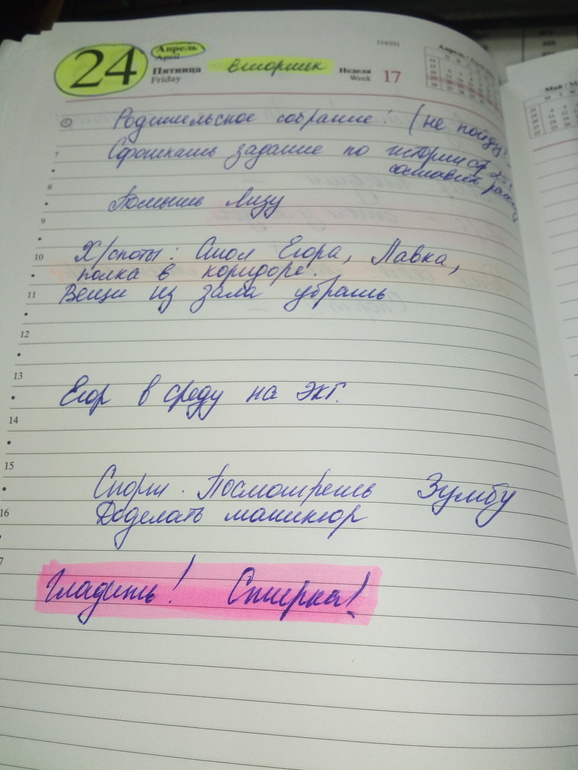 24 Апрель
April
Пятница вторник Неделя 17
Friday Week
Апрель /
Май / Ma
Родительское собрание (не пойду)
7 Сфоткать задание по истории
составить
8
Помыть Лизу
9
10 Х/споты: Стол Егора, Лавка,
полка в коридоре.
11 Вещи из зала убрать
12
13
Егор в среду на ЭКГ.
14
15
Спорт. Посмотреть Зумбу
16 Доделать маникюр
7
Гладить! Стирка!